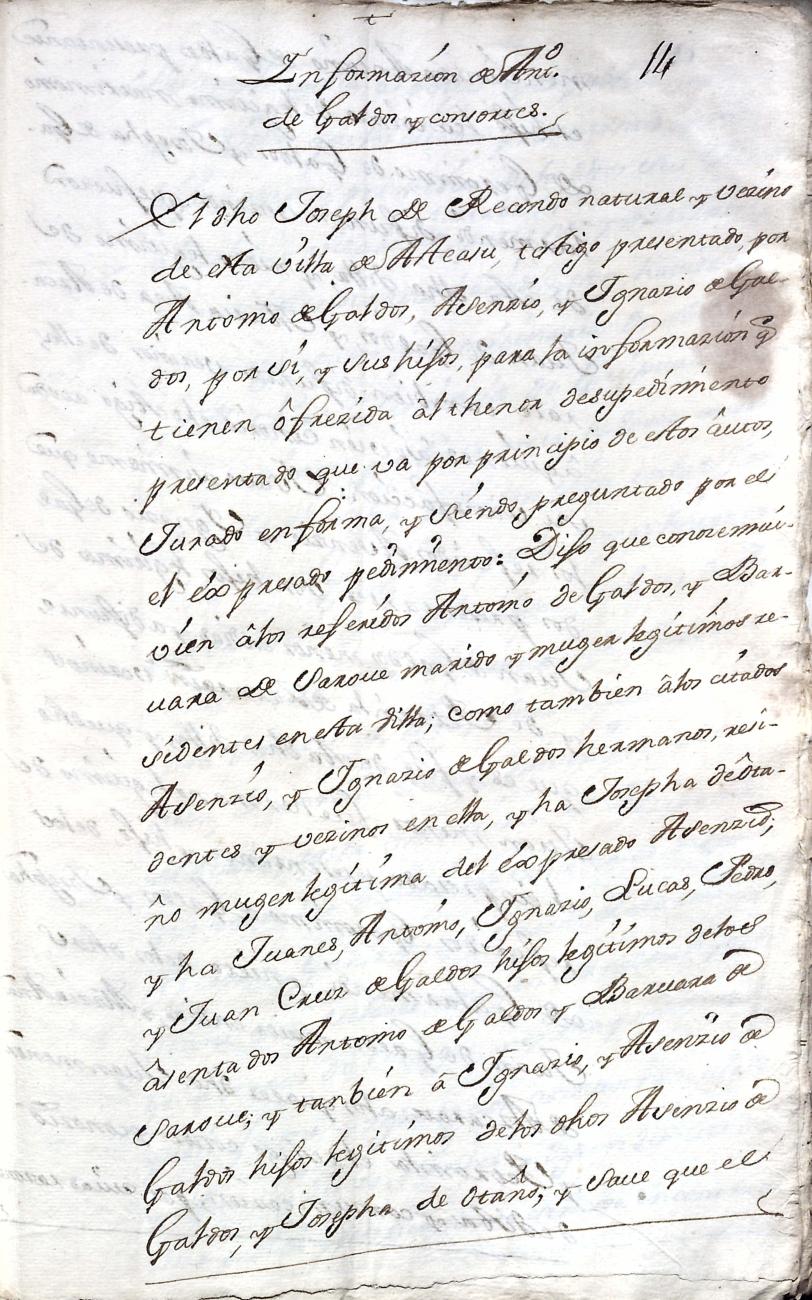 +
Informazion de Antº.
de Galdos y consortes.
14
El dho Joseph de Recondo natural y vezino
de esta villa de Asteasu, testigo presentado, por
Antonio de Galdos, Asenzio, y Ignazio de Gal-
dos, por sí, y sus hijos, para la informazion q̃
tienen ôfrezida âl thenor desupedimiento
presentado que va por principio de estos âutos,
Jurado en forma, y siendo preguntado por el
el êxpresado pedimiento: Dijo que conoze mui
vien âlos referidos Antonio de Galdos, y Bar-
uara de Saroue marido y muger legítimos re-
sidentes enesta villa; como tambien âlos citados
Asenzio, y Ignazio de Galdos hermanos, resi-
dentes y vezinos en ella, y ha Josepha deôta-
ño muger legítima del êxpresado Asenzio;
y ha Juanes, Antonio, Ignazio, Lucas, Pedro,
y Juan Cruz de Galdos hijos legítimos delos
âsentados Antonio de Galdos y Baruara de
Saroue; y tanbién â Ignazio, y Asenzio de
Galdos hijos legitimos delos dhos Asenzio de
Galdos, y Josepha de Otaño; y saue que el